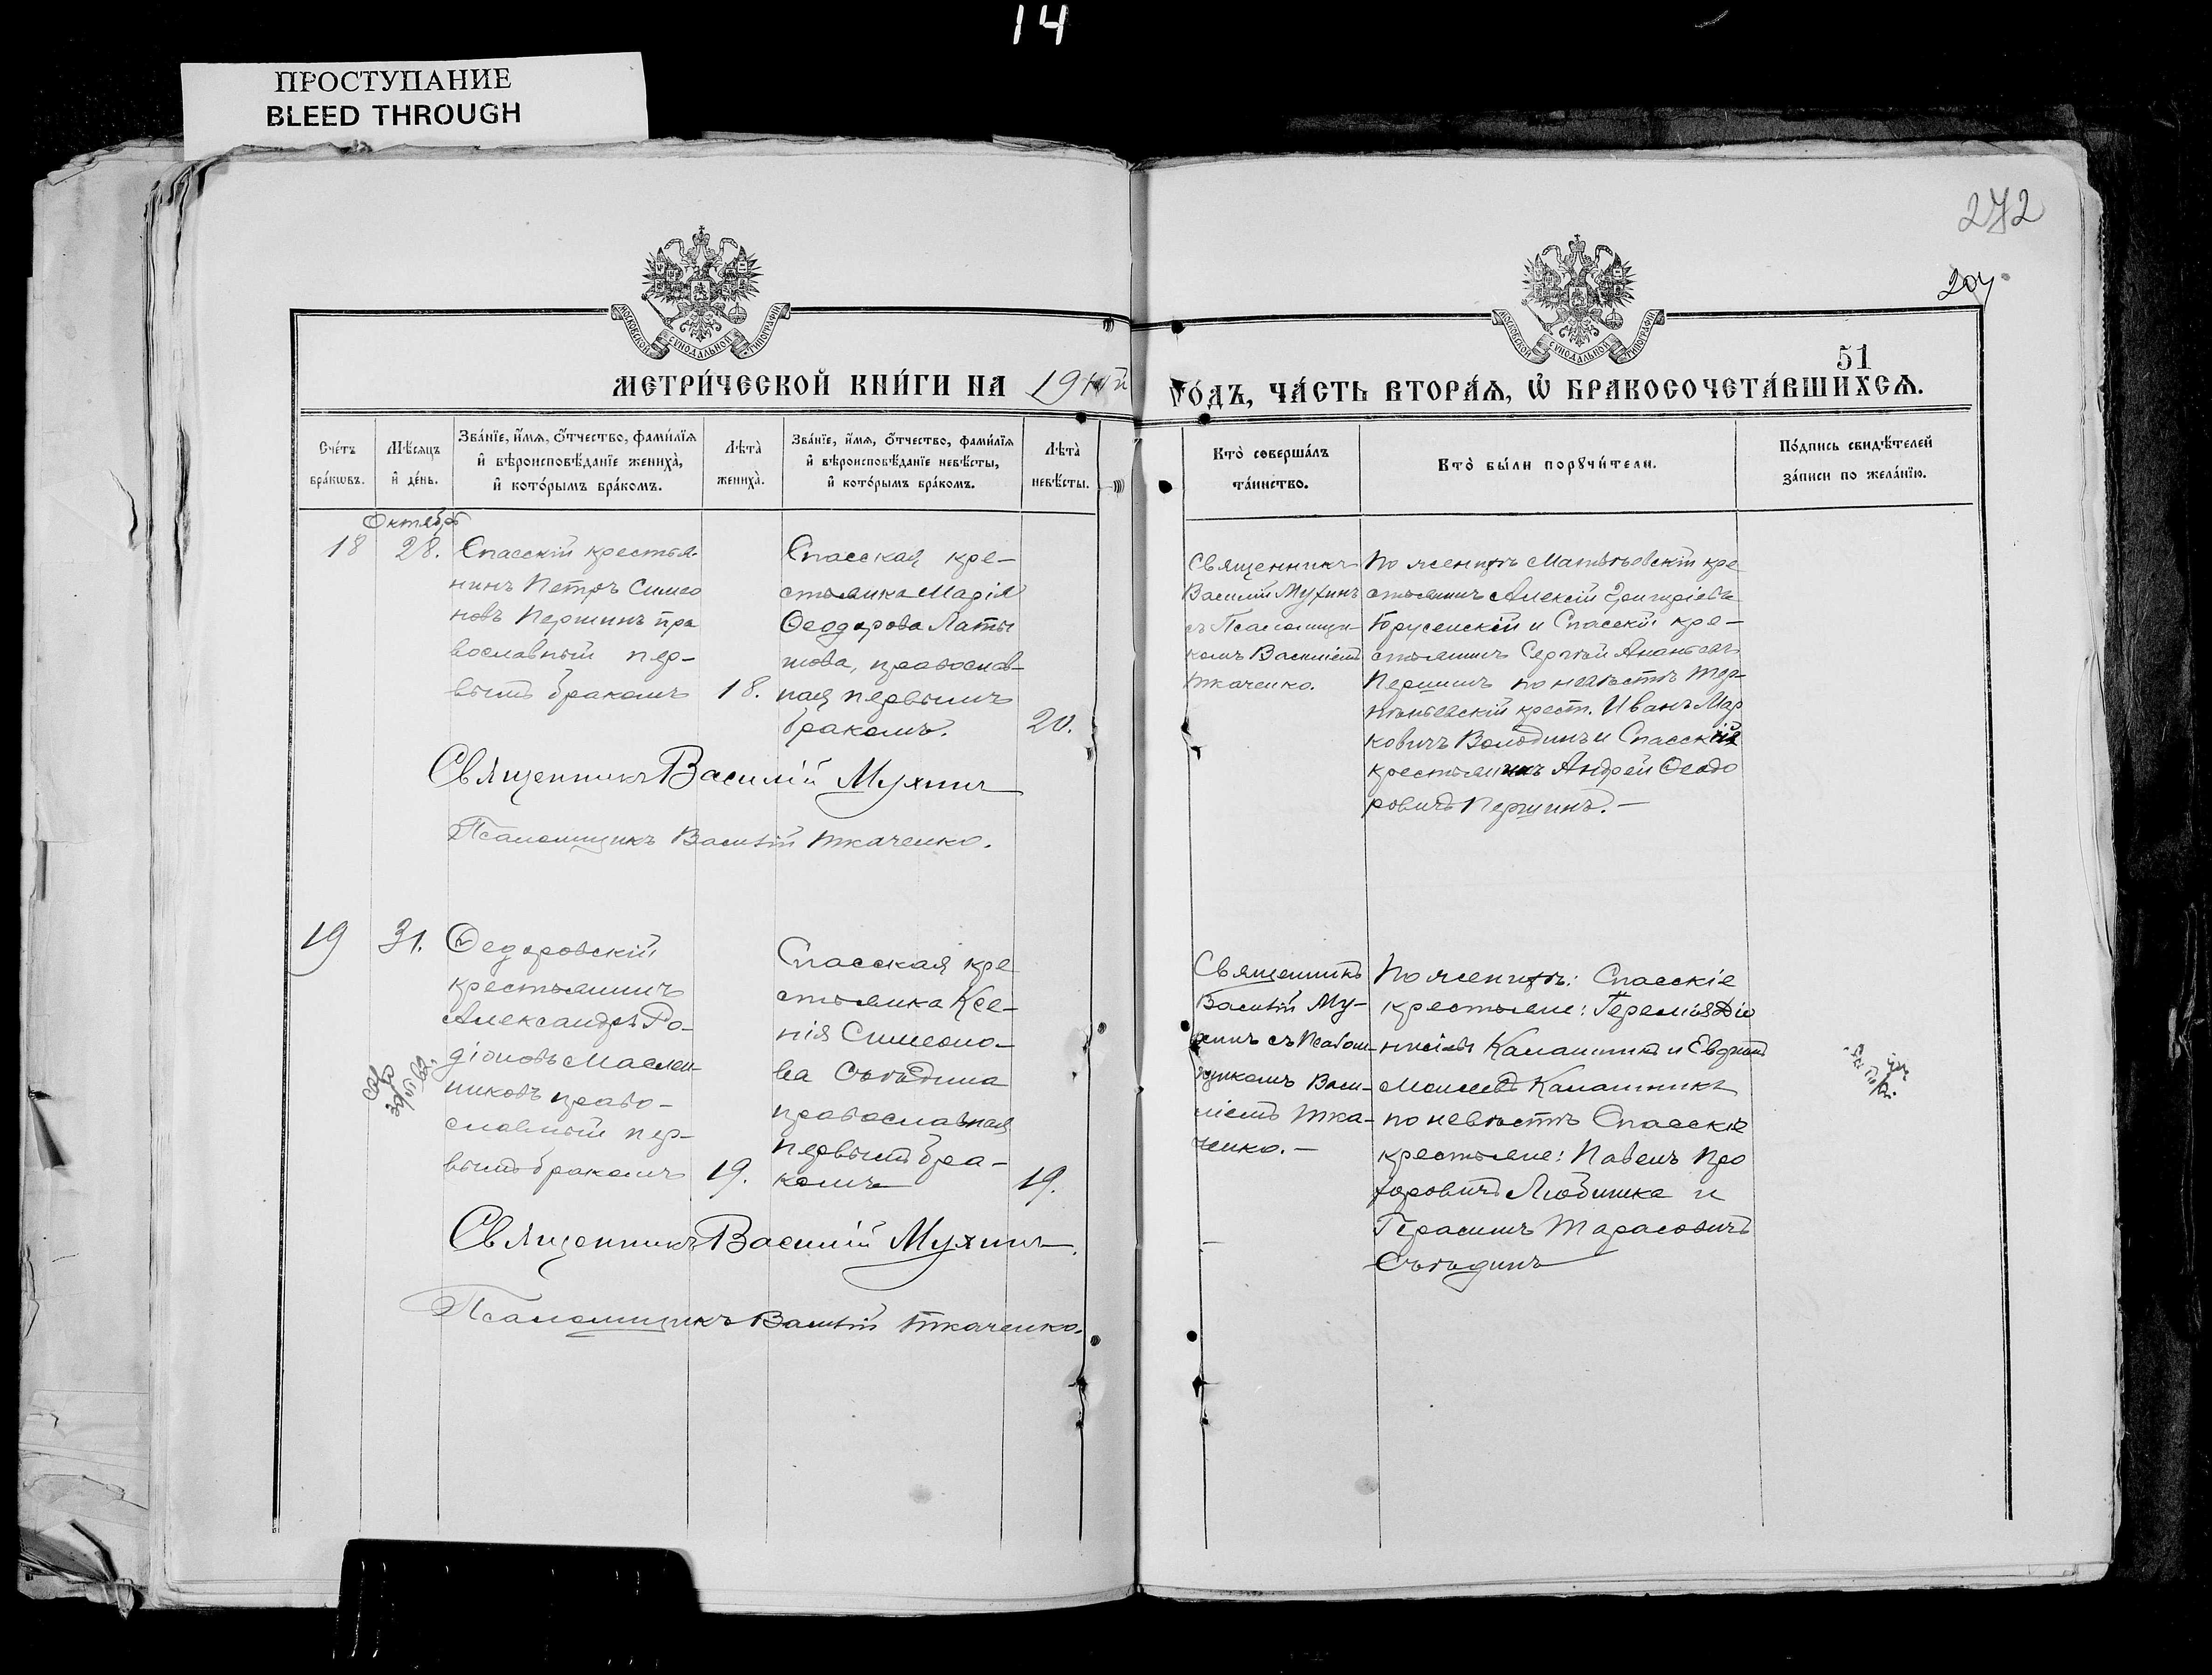 14
ПРОСТУПАНИЕ
BLEED THROUGH
272
204
51
МОСКОВСКОЙ СУНОДАЛЬНОЙ ТИПОГРАФІИ
МОСКОВСКОЙ СУНОДАЛЬНОЙ ТИПОГРАФІИ
МЕТРИ́ЧЕСКОЙ КНИ́ГИ НА 19
ГО́ДЪ, ЧА́СТЬ ВТОРА́Я, Ѿ БРАКОСОЧЕТА́ВШИХСЯ.
Сче́тъ
бра́кѡвъ.
Мѣ́сяцъ
и҆ де́нь.
Зва́нїе, и҆́мя, ѻ҆́тчество, фами́лїя
и҆ вѣроисповѣ́данїе жениха̀,
и҆ кото́рымъ бра́комъ.
Лѣта̀
жениха̀.
Зва́нїе, и҆́мя, ѻ҆́тчество, фами́лїя
и҆ вѣроисповѣ́данїе невѣ́сты,
и҆ кото́рымъ бра́комъ.
Лѣта̀
невѣ́сты.
Кто̀ соверша́лъ
та́инство.
Кто̀ бы́ли порꙋчи́тели.
По́дпись свидѣ́телей
за́писи по жела́нїю.
Октябрь
18
28.
Спасскій крестья-
нинъ Петръ Симео
новъ Першинъ пра
вославный пер-
вымъ бракомъ
18.
Спасская кре-
стьянка Марія
Ѳеодорова Латы
шова, православ-
ная первымъ
бракомъ.
20.
Священникъ
Василій Мухинъ
съ Псаломщи-
комъ Василіемъ
Ткаченко.
По женихѣ Матвѣевскій кре
стьянинъ Алексій Григоріевъ
и Спасскій кре-
стьянинъ Сергѣй Ананьевъ
Першинъ по невѣстѣ Тер-
крест. Иванъ Мар
ковичъ Володинъ и Спасскій
крестьянинъ Андрей Ѳеодо
ровичъ Першинъ.-
Священникъ Василій Мухинъ
Псаломщикъ Василій Ткаченко.
19
31.
Ѳедоровскій
крестьянинъ
Александръ Ро-
діоновъ Маслен-
никовъ право-
славный пер-
вымъ бракомъ
19.
Спасская кре
стьянка Ксе-
нія Симеоно-
ва Съѣдина
православная
первымъ бра-
комъ
19.
Священникъ
Василій Му-
хинъ съ Псалом-
щикомъ Васи-
ліемъ Тка-
ченко.-
По женихѣ: Спасскіе
крестьяне: Іеремія Діо
нисіевъ Калашникъ и Евдокимъ
Моисеевъ Калашникъ
по невѣстѣ Спасскіе
крестьяне: Павелъ Про
хоровичъ Любишка и
Герасимъ Тарасовичъ
Съѣдинъ
Священникъ Василій Мухинъ.
Псаломщикъ Василій Ткаченко.